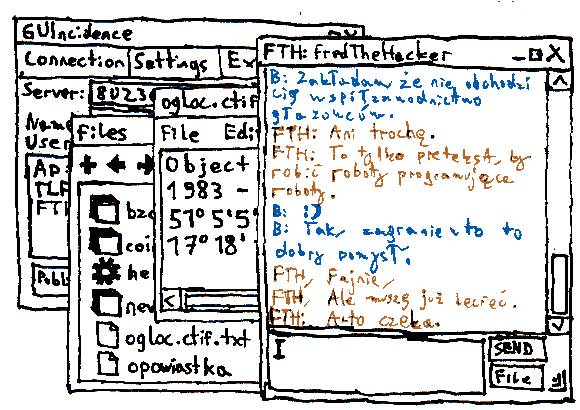 GUIncidence
Connection Settings Ex
Server: 8U23
Name
User
Ap
TLF
FT
Publ
Files
bzd
coi
he
new
ogloc.ctif.txt
opowiastka
ogloc.ctif
File Edi
Object
1983 -
51° 5'5
17° 18'
FTH: fredTheHacker
B: Zakładam że nie obchodzi
cię współzawodnictwo
głazowców.
FTH: Ani trochę.
FTH: To tylko pretekst, by
robić roboty programujące
roboty.
B: :)
B: Tak, zagranie w to to
dobry pomysł.
FTH, Fajnie,
FTH, Ale muszę już lecieć.
FTH: Auto czeka.
I
SEND
File